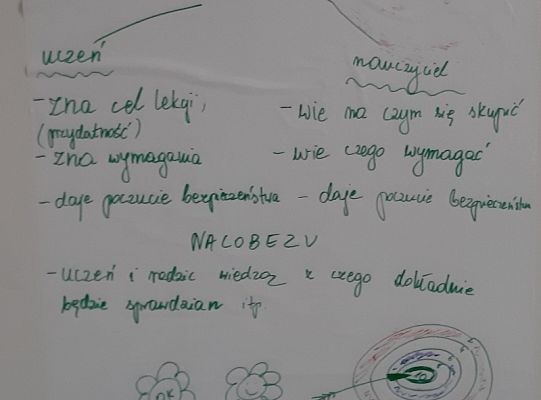 uczeń
nauczyciel
- zna cel lekcji,
(przydatność)
- wie na czym się skupić
- zna wymagania
- wie czego wymagać
- daje poczucie bezpieczeństwa
- daje poczucie bezpieczeństwa
NACOBEZU
- uczeń i rodzic wiedzą z czego dokładnie
będzie sprawdzian itp.
OK
10